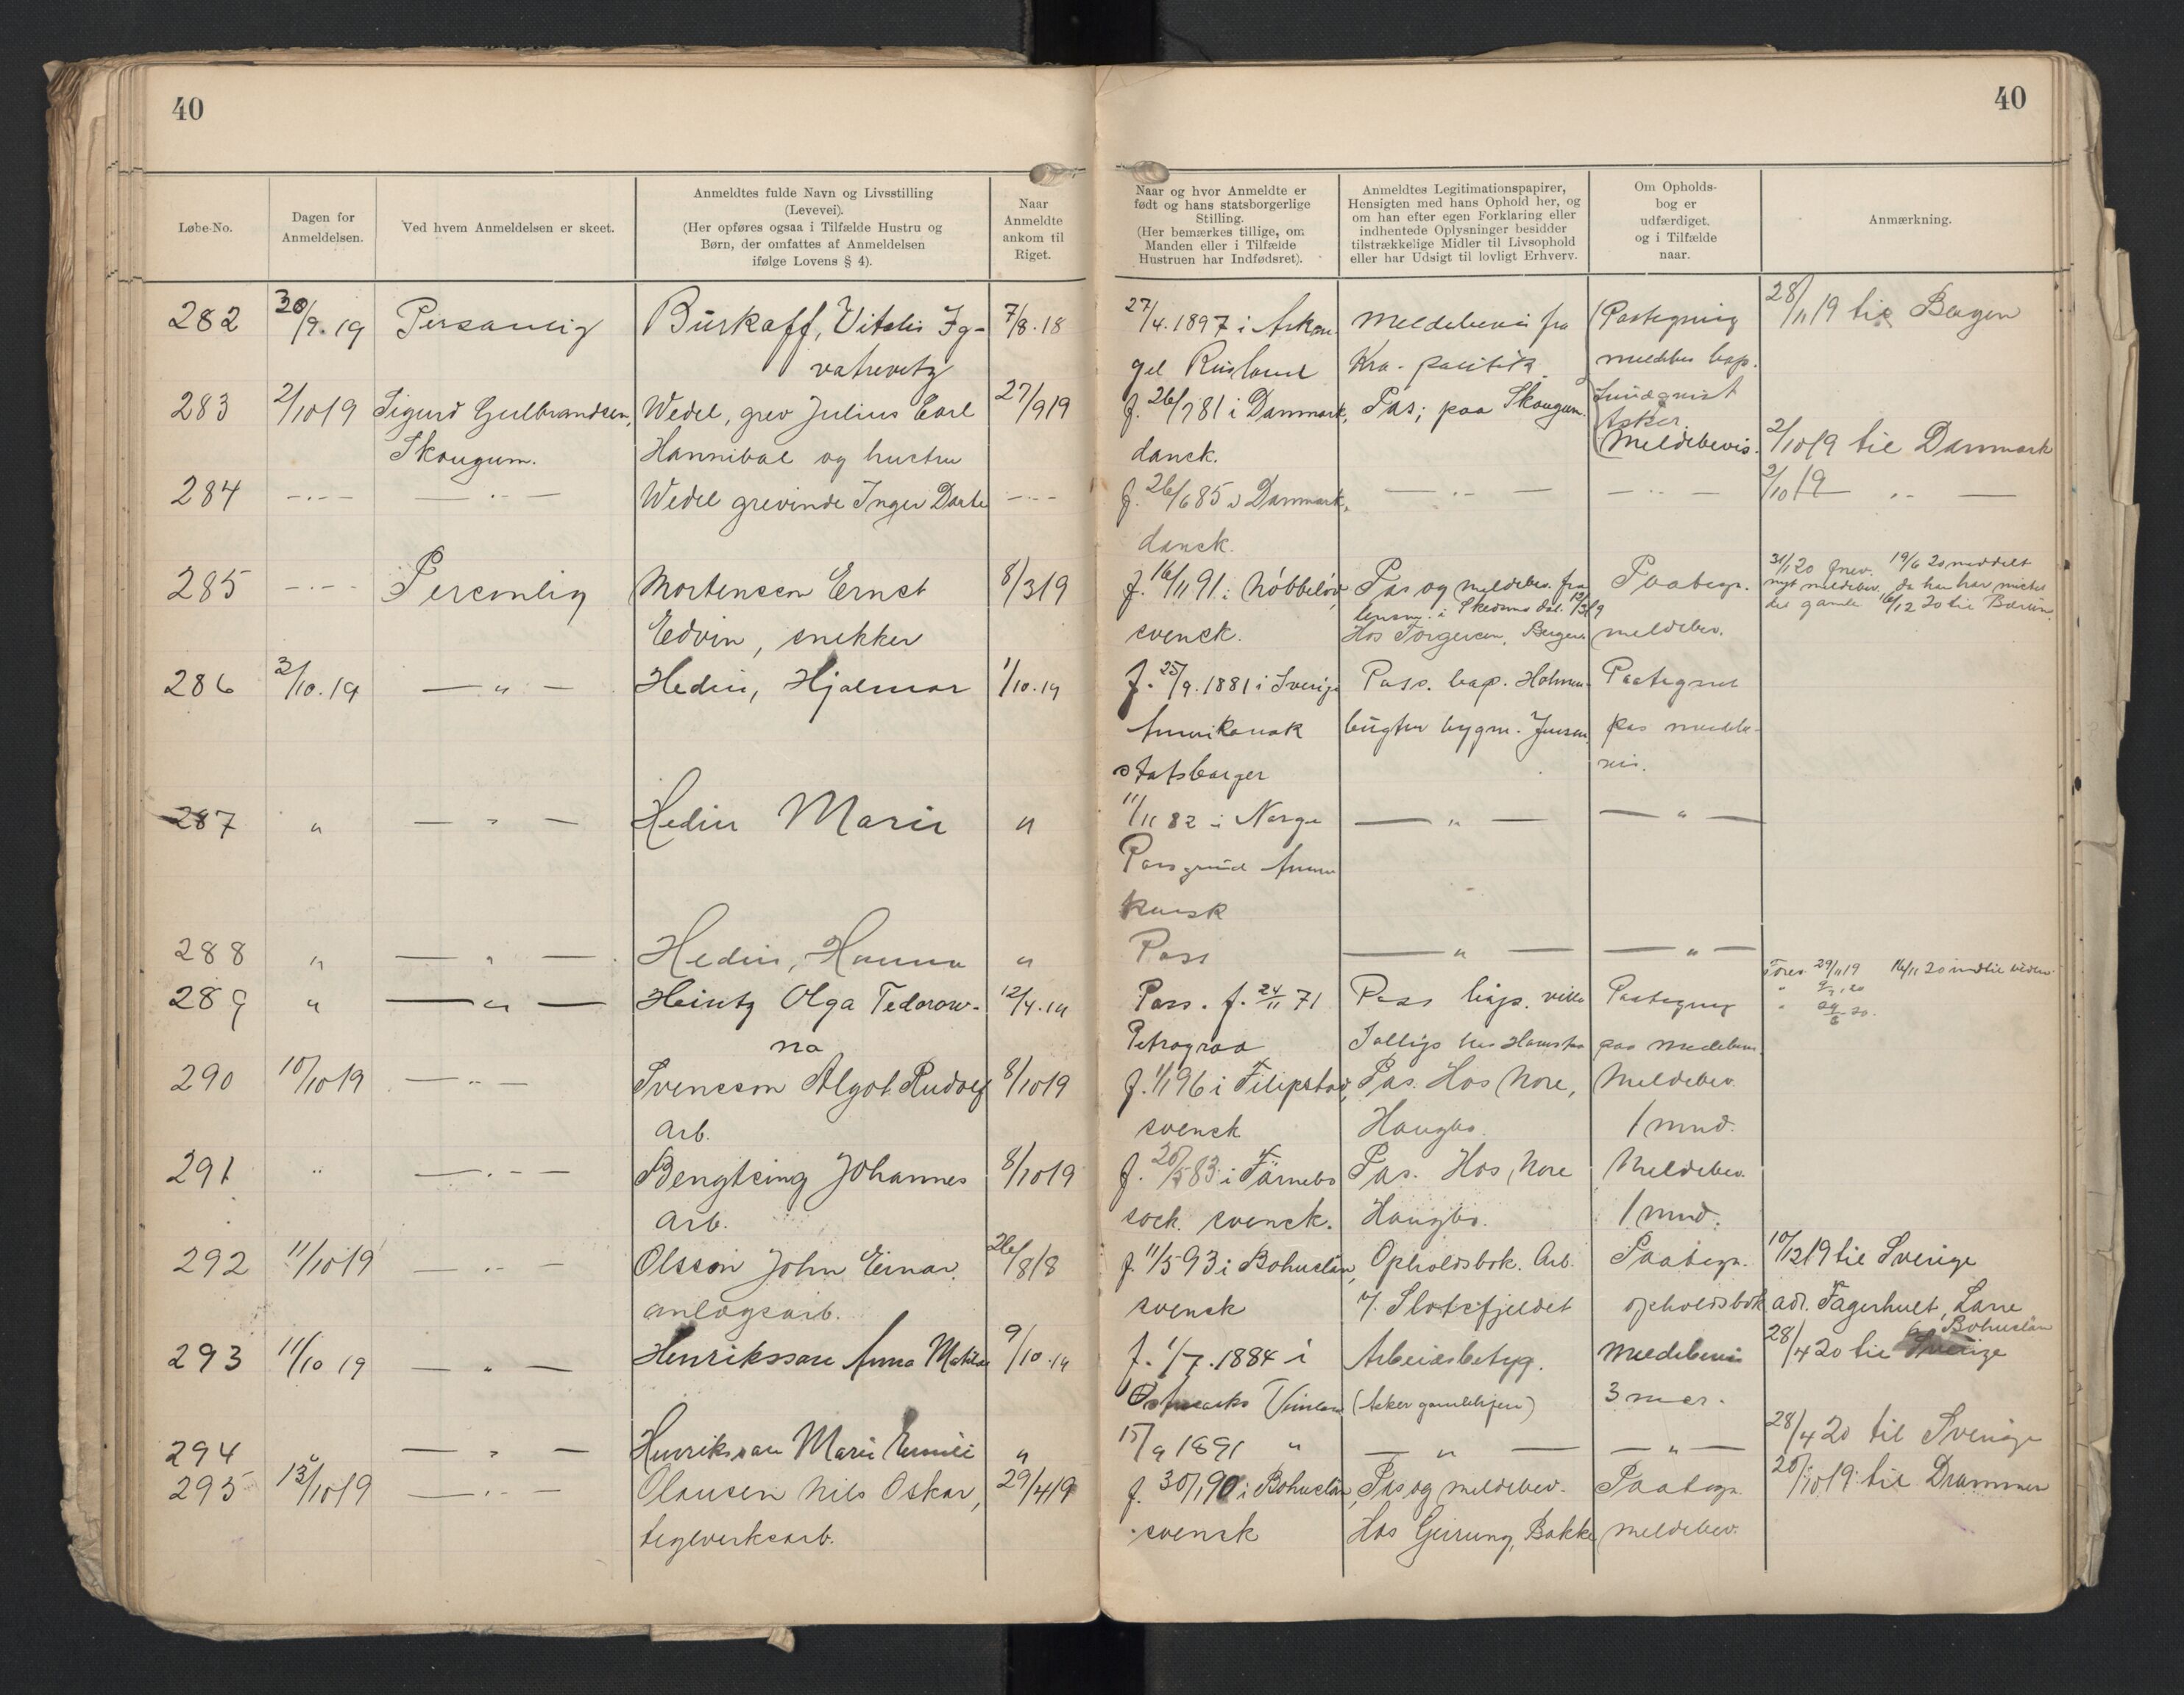 40
40
Løbe-No.
Dagen for
Anmeldelsen.
Ved hvem Anmeldelsen er skeet.
Anmeldtes fulde Navn og Livsstilling
(Levevei).
(Her opføres ogsaa i Tilfælde Hustru og
Børn, der omfattes af Anmeldelsen
ifølge Lovens § 4).
Naar
Anmeldte
ankom til
Riget.
Naar og hvor Anmeldte er
født og hans statsborgerlige
Stilling.
(Her bemærkes tillige, om
Manden eller i Tilfælde
Hustruen har Indfødsret).
Anmeldtes Legitimationspapirer,
Hensigten med hans Ophold her, og
om han efter egen Forklaring eller
indhentede Oplysninger besidder
tilstrækkelige Midler til Livsophold
eller har Udsigt til lovligt Erhverv.
Om Opholds-
bog er
udfærdiget,
og i Tilfælde
naar.
Anmærkning.
282 30/9.19 Personlig Burkaff, Vitalis Ig- 7/8.18 27/4.1897 i Arkan Meldebevis fra Paategning 28/11 19 til Bergen
gel Rusland Kra. politik meldbev
283 2/10 19 Sigurd Gulbrandsen, Wedel, grev Julius Carl 27/9 19 f. 26/7 81 i Danmark, Pas; paa Skougum.
Asker
Skougum. Hannibal og hustru dansk. Meldebevis. 2/10 19 til Danmark
284 -"- — " — Wedel grevinde Inger Dorte -"- f. 26/6 85 i Danmark, — " — — " — 2/10 19 — " —
dansk.
285 -"- Personlig Mortensen Ernst 8/3 19 f. 16/11 91 i Nöbbelöv, Pas og meldebev. fra Paategn. 19/6 20 meddelt
nyt meldebev, da han har mistet
det gamle 16/12 20 til Bærum
Edvin, snekker svensk. Hos Torgersen, Bergen meldebev.
286 3/10.19 — " — Hedin, Hjalmar 1/10.19 f. 25/9.1881 i Sverige Pass. Holmen Paategnet
Amerikansk bugten bygm. Jensen pas meldebe-
statsborger vis.
287 " — " — Hedin Marie " 11/11 82 i Norge — " — — " —
Porsgrund Ameri
kansk
288 " — " — Hedin, Hanna " Pass — " — — " —
289 " — " — Heintz Olga Fedorow- 12/4.19 Pass. f. 24/11 71 Pass villa Paategning
na Petrograd paa meldebevis
290 10/10 19 — " — Svensson Algot Rudolf 8/10 19 f. 1/1 96 i Filipstad, Pas. Hos Nore, Meldebev.
arb. svensk Haugbo. 1 mnd.
291 " — " — Bengtsing Johannes 8/10 19 f. 20/5 83 i Färnebo Pas. Hos Nore Meldebev.
arb. sock. svensk. Haugbo. 1 mnd.
292 11/10 19 — " — Olsson John Einar, 26/8 18 f. 11/5 93 i Bohuslän, Opholdsbok. Arb. Paategn. 10/12 19 til Sverige
anlægsarb. svensk v. Slotsfjeldet opholdsbok adr. Fagerhult, Lane
Bohuslän
293 11/10 19 — " — Henriksson Anna Matilda 9/10.19 f. 1/7.1884 i Arbeidsbetyg. Meldebevis 28/4 20 til Sverige
Östmarks (Asker gamlehjem) 3 mdr.
294 " — " — Henriksson Marie Emili " 15/9 1891 " — " — — " — 28/4 20 til Sverige
295 13/10 19 — " — Olausen Nils Oskar, 29/4 19 f. 30/1 90 i Bohuslän, Pas og meldebev. Paategn. 20/10 19 til Drammen
teglverksarb. svensk Hos Geirung, Bakke meldebev.